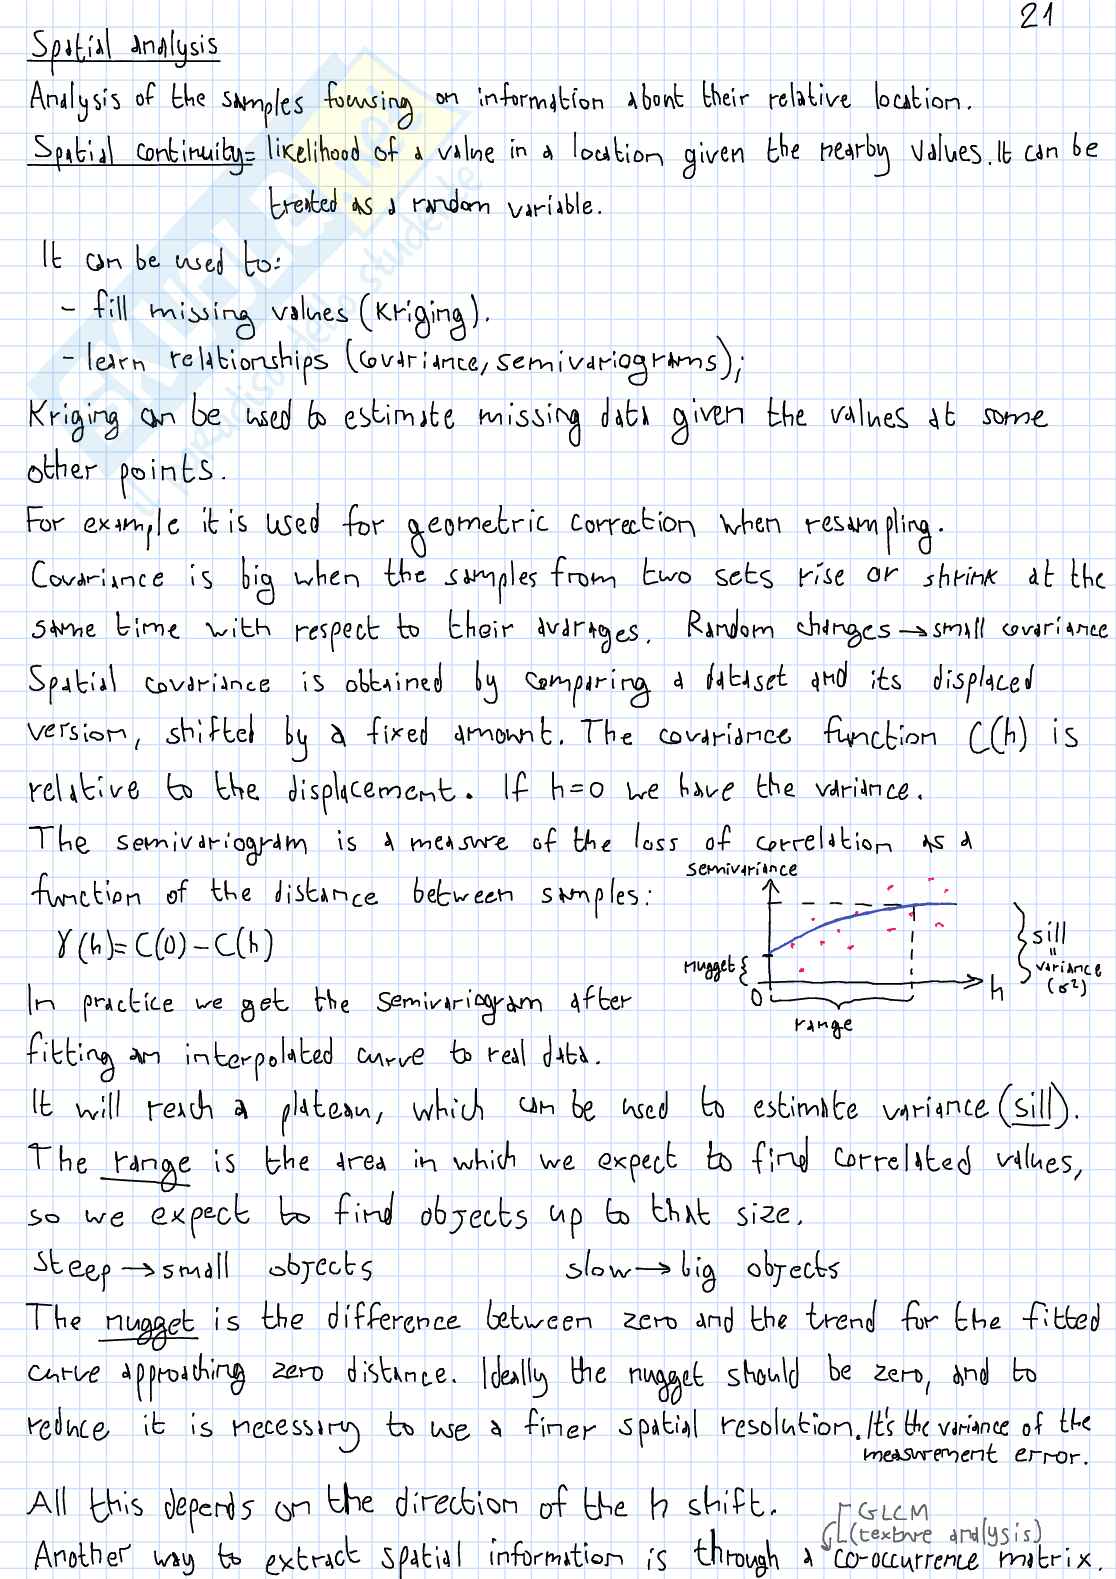 21
Spatial analysis
Analysis of the samples focusing on information about their relative location.
Spatial continuity= likelihood of a value in a location given the nearby values. It can be
treated as a random variable.
It can be used to:
- fill missing values (Kriging).
- learn relationships (covariance, semivariograms);
Kriging can be used to estimate missing data given the values at some
other points.
For example it is used for geometric correction when resampling.
Covariance is big when the samples from two sets rise or shrink at the
same time with respect to their avarages. Random changes → small covariance
Spatial covariance is obtained by comparing a dataset and its displaced
version, shifted by a fixed amount. The covariance function C(h) is
relative to the displacement. If h=0 we have the variance.
The semivariogram is a measure of the loss of correlation as a
function of the distance between samples:
γ(h)=C(0)-C(h)
semivariance
nugget {
0
h
range
} sill
=
variance
(σ²)
In practice we get the semivariogram after
fitting an interpolated curve to real data.
It will reach a plateau, which can be used to estimate variance (sill).
The range is the area in which we expect to find correlated values,
so we expect to find objects up to that size.
Steep → small objects slow → big objects
The nugget is the difference between zero and the trend for the fitted
curve approaching zero distance. Ideally the nugget should be zero, and to
reduce it is necessary to use a finer spatial resolution. It's the variance of the
measurement error.
All this depends on the direction of the h shift.
GLCM
(texture analysis)
Another way to extract spatial information is through a co-occurrence matrix.